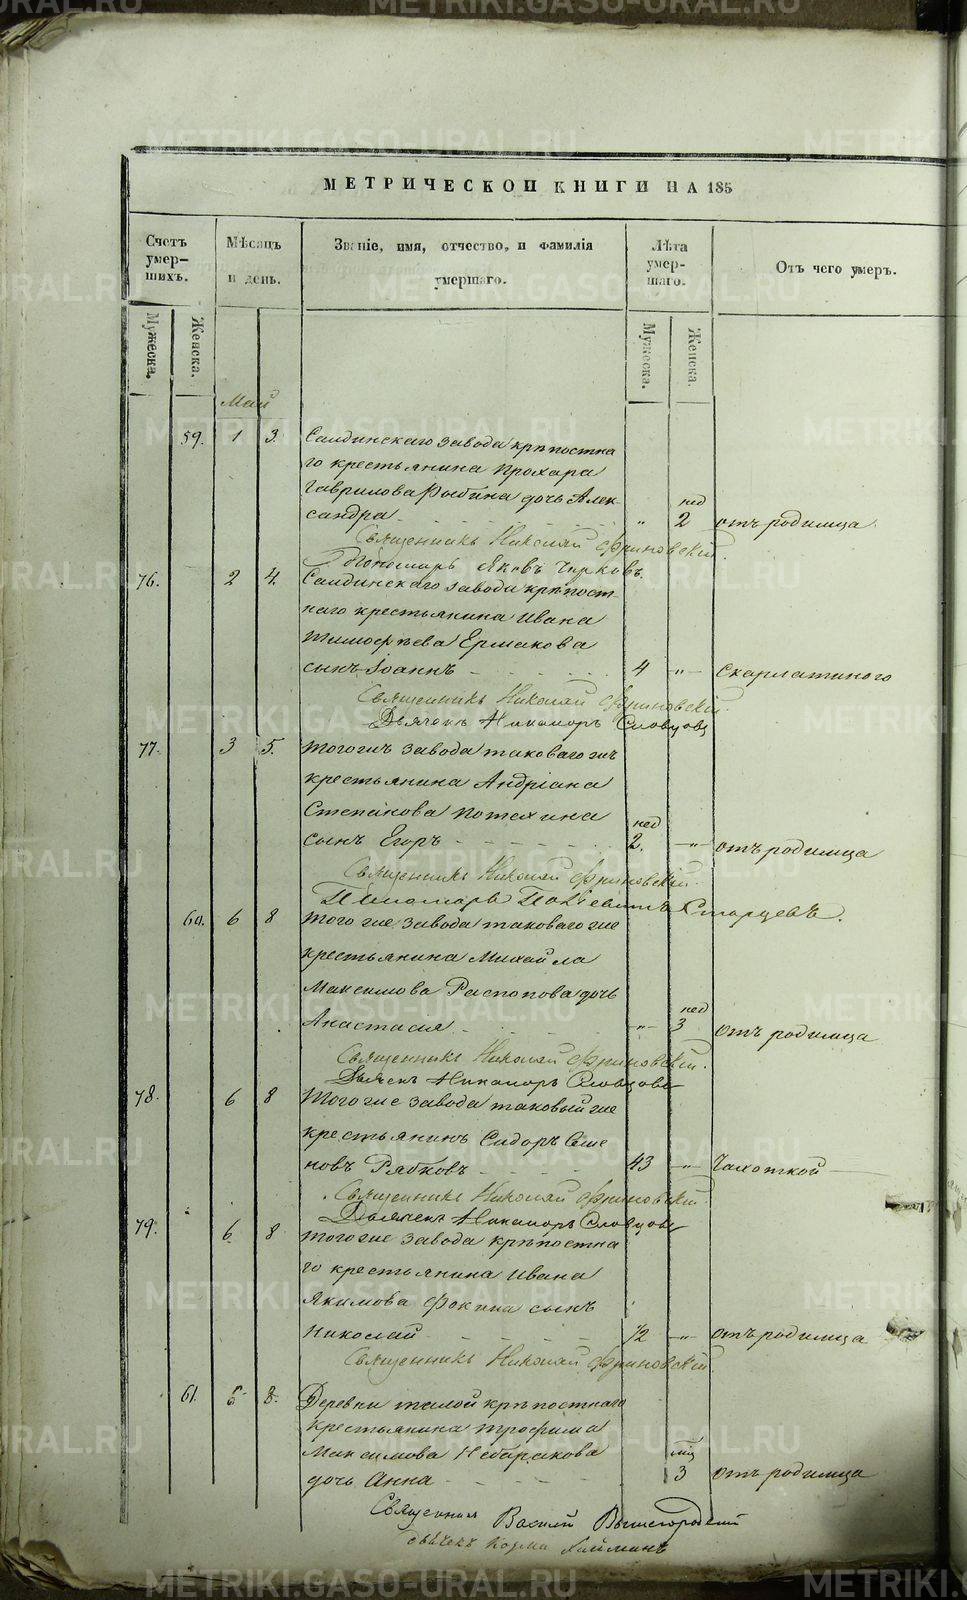 МЕТРИЧЕСКОЙ КНИГИ НА 185
Счетъ умерших. Мѣсяцъ и день. Званіе, имя, отчество, и фамилія умершаго. Лѣта умершаго. Отъ чего умеръ.
Мужеска. Женска. Мужеска. Женска.
Май
59. 1 3. Салдинскаго завода крѣпостна
го крестьянина Прохара
Гаврилова Рыбина дочь Алек-
сандра „ нед 2 отъ родимца
Священникъ Николай Фриновскій.
Пономарь Яковъ Чирковъ.
76. 2 4. Салдинскаго завода крѣпост-
наго крестьянина Ивана
Тимофѣева Ермакова
сынъ Іоаннъ 4 „ Скарлатиного
Священникъ Николай Фриновскій.
Дьячекъ Никаноръ Словцовъ
77. 3 5. Тогожъ завода таковагожъ
крестьянина Андріана
Степанова Потехина
сынъ Егоръ нед 2. „ отъ родимца
Священникъ Николай Фриновскій.
Пономарь Старцевъ.
60. 6 8 Того же завода таковаго же
крестьянина Михайла
Максимова Распопова дочь
Анастасія „ нед 3 отъ родимца
Священникъ Николай Фриновскій.
Дьячекъ Никаноръ Словцовъ
78. 6 8 Того же завода таковый же
крестьянинъ Сидоръ Семе
новъ Рябковъ 43 „ Чахоткой
Священникъ Николай Фриновскій.
Дьячекъ Никаноръ Словцовъ
79. 6 8 Того же завода крѣпостна
го крестьянина Ивана
Якимова Фокина сынъ
Николай 1/2 „ отъ родимца
Священникъ Николай Фриновскій.
61. 6 8. Деревни крѣпостнаго
крестьянина Трофима
Максимова
дочь Анна мц 3 отъ родимца
Священникъ Василій Вышегородскій
Дьячекъ Козма
METRIKI.GASO-URAL.RU